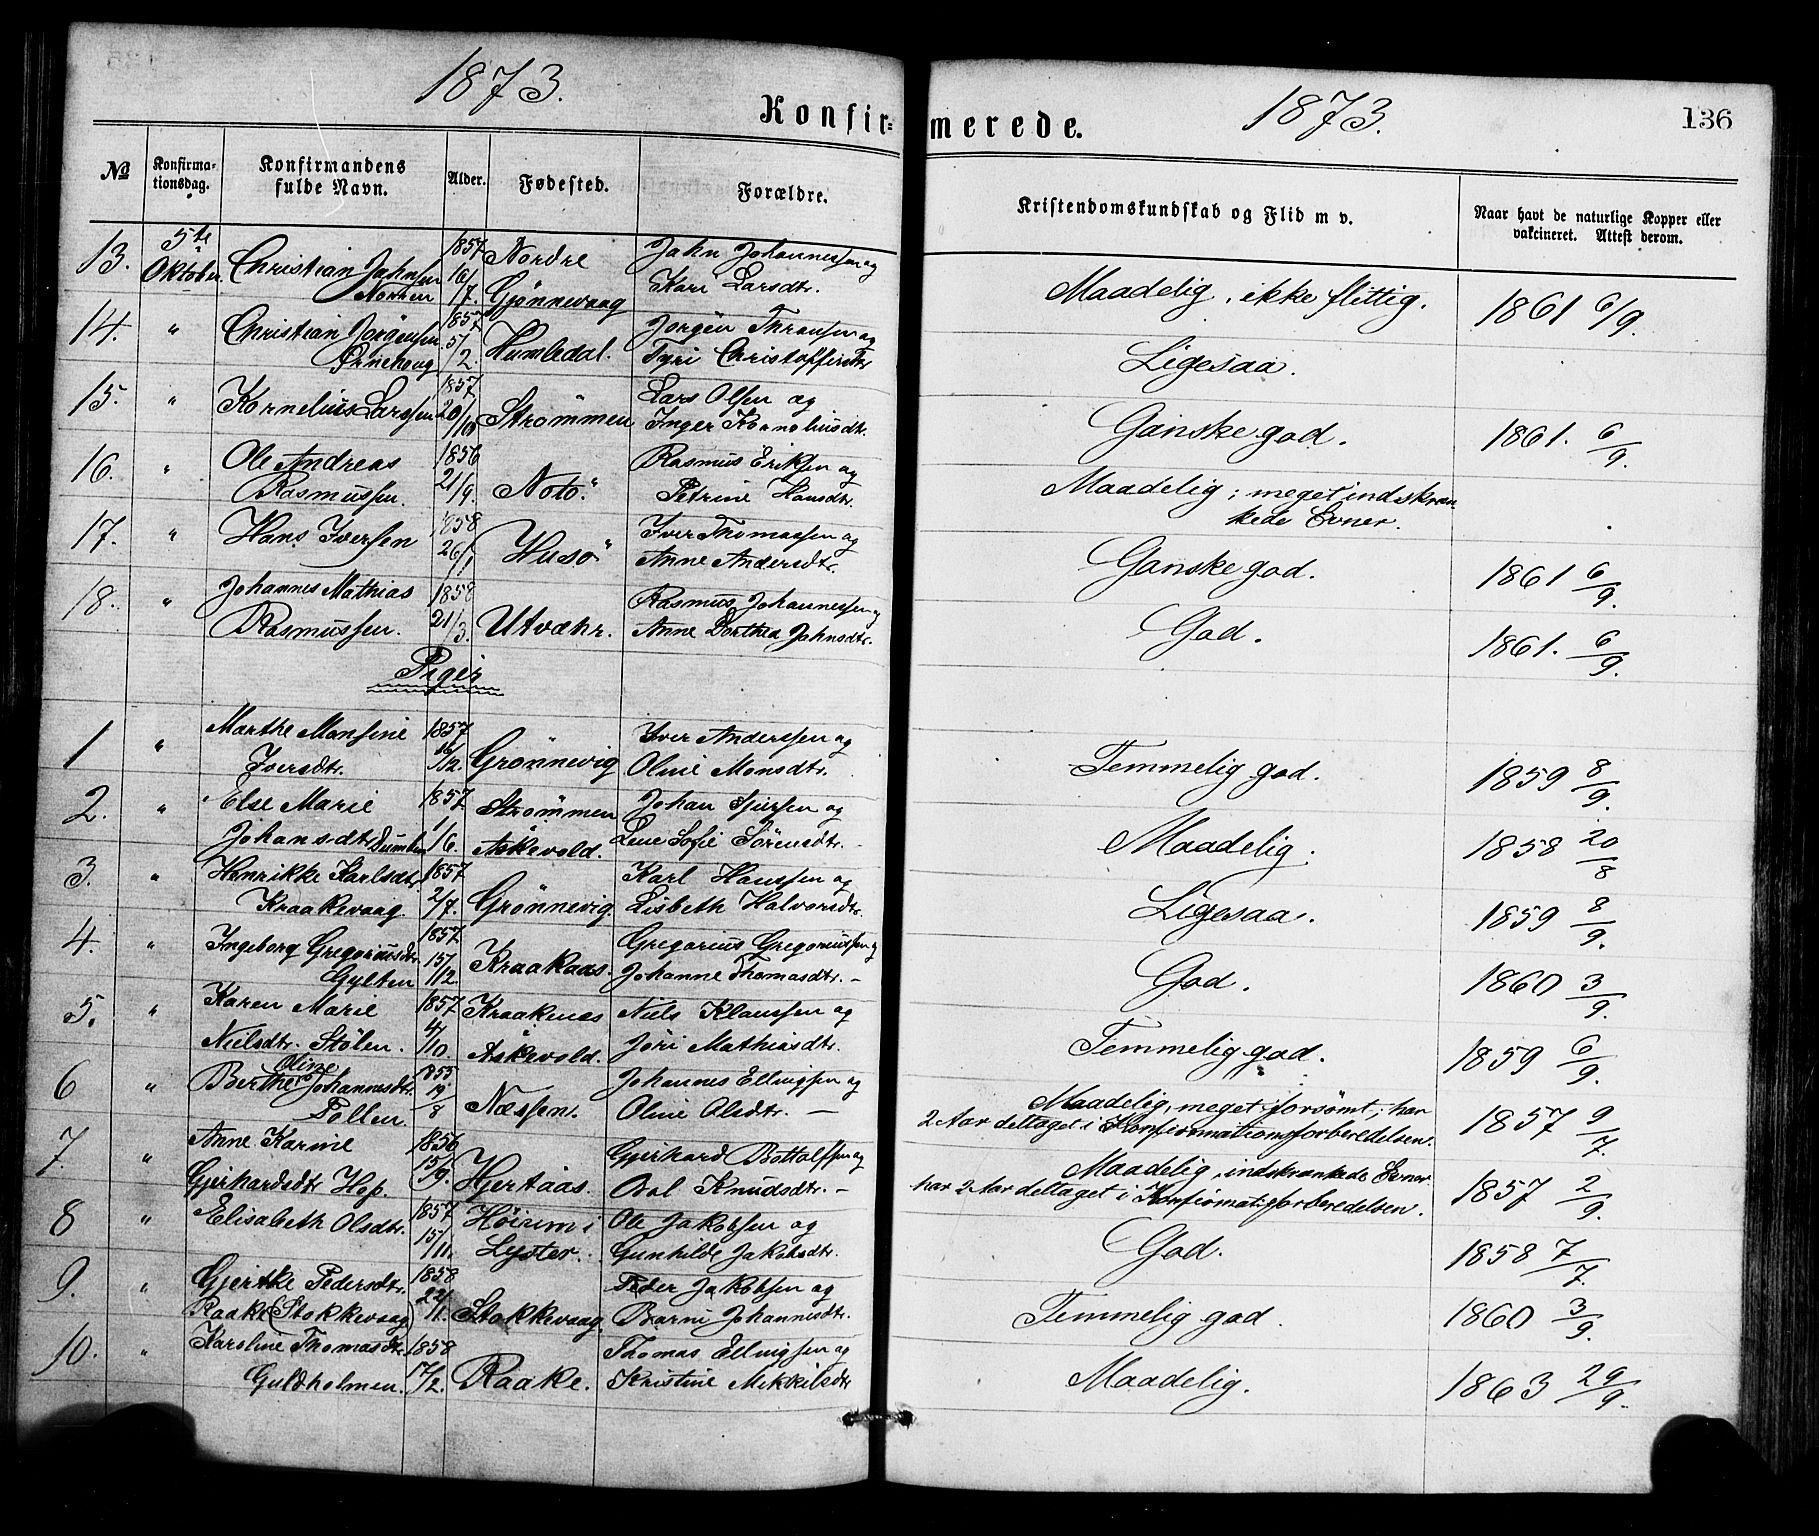 1873.
1873.
136
Konfir=
merede.
No
Konfirma-
tionsdag.
Konfirmandens
fulde Navn.
Alder.
Fødested.
Forældre.
Kristendomskundskab og Flid m v.
Naar havt de naturlige Kopper eller
vakcineret. Attest derom.
13. 5te Oktober. Christian Jahnsen 1857 16/7. Nordre Gjønnevaag Jahn Johannessen og Kari Larsdtr. Maadelig, ikke flittig. 1861 6/9.
14. " Christian Jørgensen Ørnehoug 1857 5/2. Humledal. Jørgen Thronsen og Tyri Christoffersdtr Ligesaa.
15. " Kornelius Larssen 1857 20/10 Strømmen Lars Olsen og Inger Korneliusdt. Ganske god. 1861. 6/9.
16. " Ole Andreas Rasmussen. 1856 21/9. Notø. Rasmus Eriksen og Petrine Hansdtr. Maadelig; meget indskræn-
kede Evner.
17. " Hans Iversen 1858 26/1 Husø Iver Thomassen og Anne Andersdtr. Ganske god. 1861 6/9.
18. " Johannes Mathias Rasmussen. 1858 21/3. Utvæhr. Rasmus Johannessen og Anne Dorthea Jahnsdtr. God. 1861. 6/9.
Piger
1 " Marthe Monsine Iversdtr. 1857 16/12. Grønnevig Iver Anderssen og Oline Monsdtr. Temmelig god. 1859 8/9.
2. " Else Marie Johansdtr 1857 1/6. Strømmen Askevold. Johan og Lene Sofie Sørensdtr. Maadelig. 1858 20/8
3. " Henrikke Karlsdtr Kraakevaag. 1857 2/7. Grønnevig. Karl Hanssen og Lisbeth Halvorsdtr. Ligesaa. 1859 8/9.
4. " Ingeborg Gregoriusdtr. Gylten 1857 15/12 Kraakaas. Gregorius Gregoriussen og Johanne Thomasdtr. – God. 1860 3/9.
5. " Karen Marie Nielsdtr. Stølen. 1857 4/10. Kraaknes Askevold. Niels Klaussen og Jøri Mathiasdtr. Temmelig god. 1859 6/9.
6 " Berthe Oline Johannesdtr. Pollen. 1855 19/8 Næssen. Johannes Ellingsen og Oline Olsdtr. – Maadelig, meget forsømt; har
2 Aar deltaget i Konfirmationsforberedelsen. 1857 9/7.
7. " Anne Karine Gjerhardsdtr Hop. 1856 15/9. Hjertaas. Gjerhard Bottolfsen og Knudsdtr. – Maadelig, indskrænkede Evner
har 2 Aar deltaget i Konfirmatiforberedelsen. 1857 2/9.
8 " Elisabeth Olsdtr. 1857 15/11. Høirum i Lyster. Ole Jakobsen og Gunhilde Jakobsdtr. God. 1858 7/7.
9. " Gjertke Pedersdtr. Raake (Stokkevaag) 1858 22/1. Stokkevaag. Peder Jakobsen og Barni Johannesdtr. Temmelig god. 1860 3/9.
10. " Karoline Thomasdtr. Guldholmen. 1858 17/2. Raake. Thomas Ellingsen og Kristine Mikkelsdtr Maadelig. 1863 29/9.